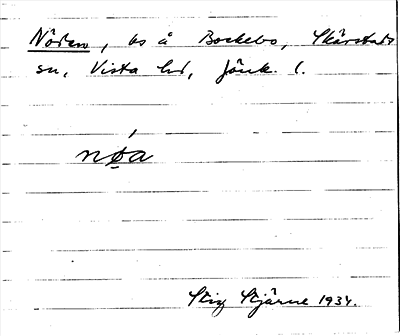 Nöden, bs å Bockebo, Skärstads
sn, Vista hd, Jönk. l.
nǿa
Stig Stjärne 1934.